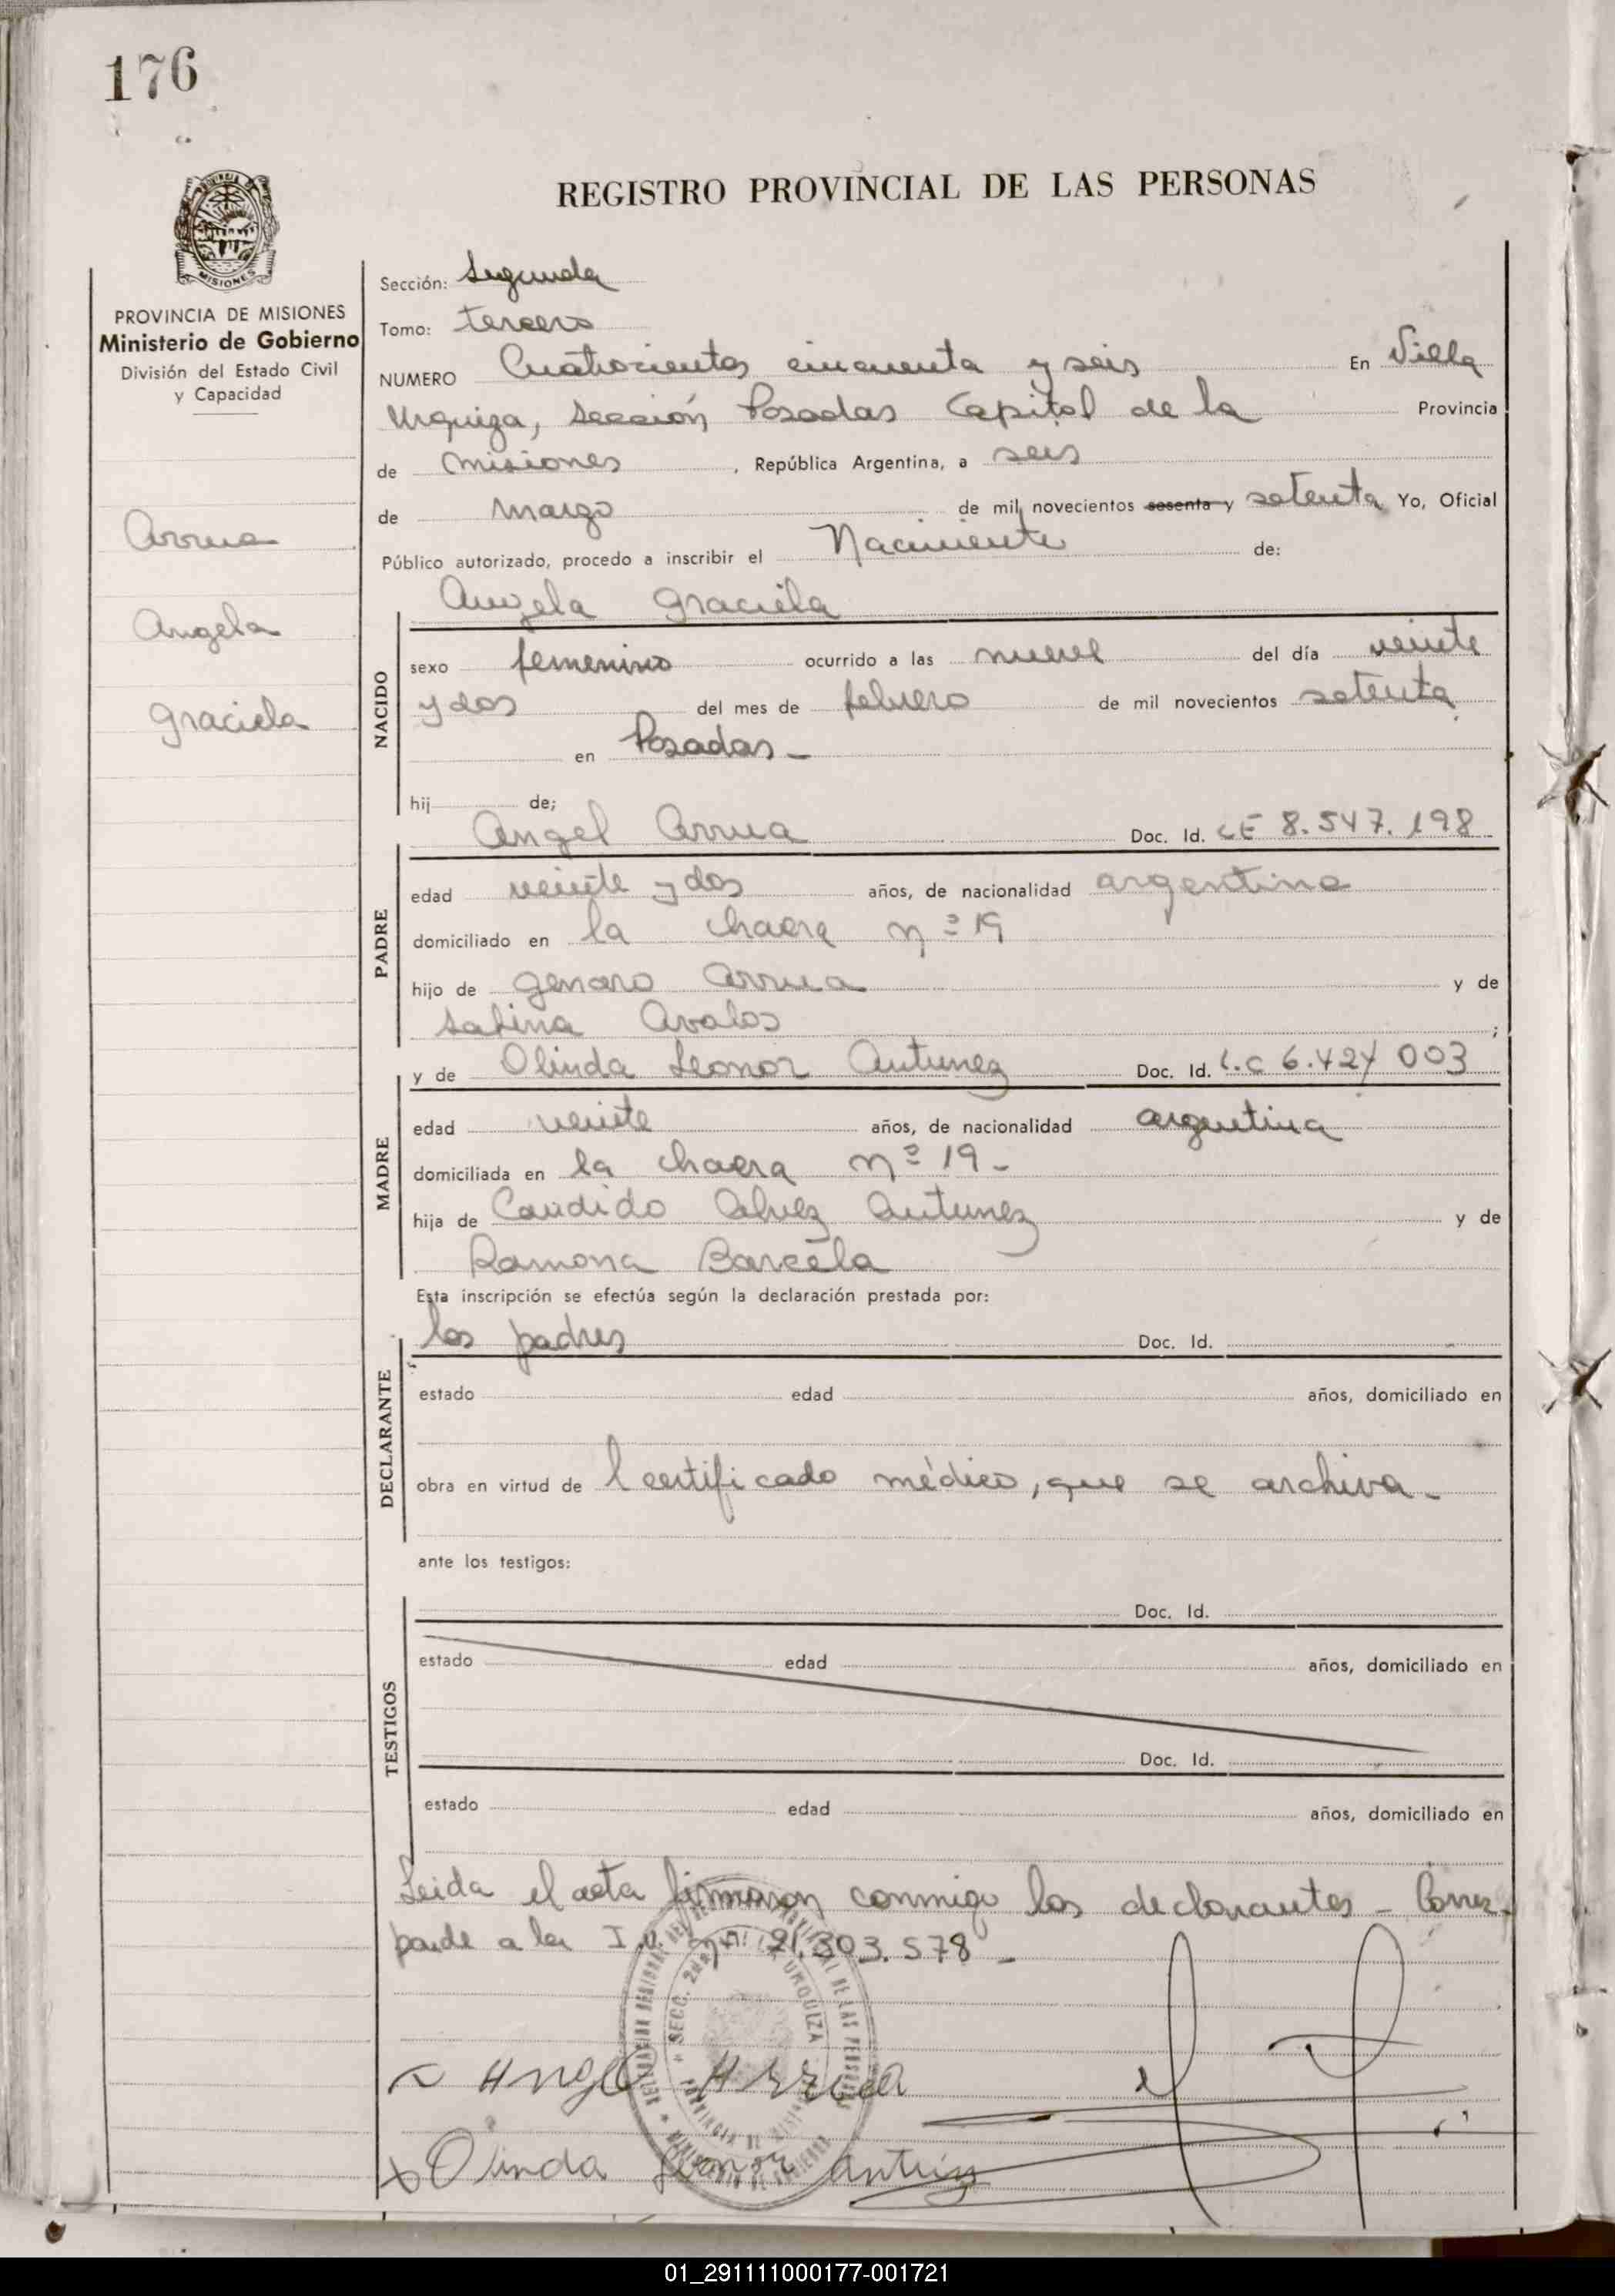 176
MISIONES
PROVINCIA DE MISIONES
Ministerio de Gobierno
División del Estado Civil
y Capacidad
Arrua
Angela
Graciela
REGISTRO PROVINCIAL DE LAS PERSONAS
Sección: Segunda
Tomo: tercero
NUMERO Cuatrocientos cincuenta y seis En Villa
Urquiza, Sección Posadas Capital de la Provincia
de Misiones, República Argentina, a seis
de Marzo de mil novecientos sesenta y setenta Yo, Oficial
Público autorizado, procedo a inscribir el Nacimiento de:
Angela Graciela
NACIDO
sexo femenino ocurrido a las nueve del día veinte
y dos del mes de febrero de mil novecientos setenta
en Posadas_
hij de;
Angel Arrua Doc. Id. LE 8.547.198
PADRE
edad veinte y dos años, de nacionalidad argentina
domiciliado en la chacra nº 19
hijo de Genaro Arrua y de
Sabina Avalos ;
y de Olinda Leonor Antunez Doc. Id. L.C 6.424 003
MADRE
edad veinte años, de nacionalidad argentina
domiciliada en la chacra nº 19_
hija de Candido Alvez Antunez y de
Ramona Barcela
Esta inscripción se efectúa según la declaración prestada por:
los padres Doc. Id.
DECLARANTE
estado edad años, domiciliado en
obra en virtud de Certificado médico, que se archiva_
ante los testigos:
Doc. Id.
TESTIGOS
estado edad años, domiciliado en
Doc. Id.
estado edad años, domiciliado en
Leida el acta firmaron conmigo los declarantes_ Corres-
ponde a la I.U. nº 21.303.578_
Angel Arrua
x Olinda Leonor
SECC. 2da URQUIZA
01_291111000177-001721